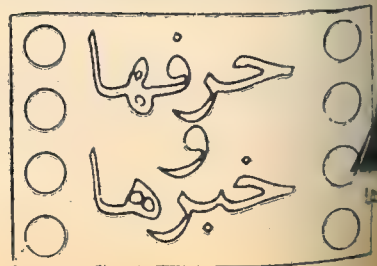 حرفها
و
خبرها